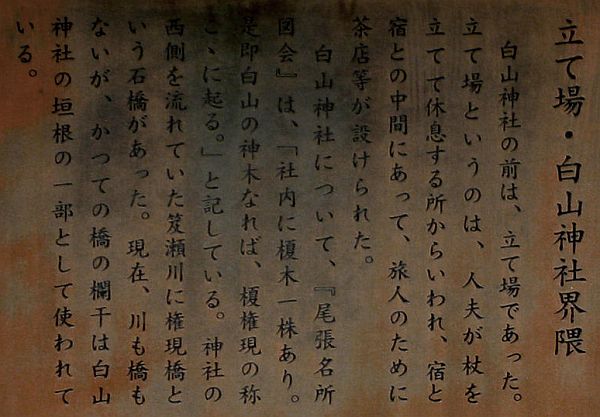 立て場・白山神社界隈
白山神社の前は、立て場であった。
立て場というのは、人夫が杖を
立てて休息する所からいわれ、宿と
宿との中間にあって、旅人のために
茶店等が設けられた。
白山神社について、『尾張名所
図会』は、「社内に榎木一株あり。
是即白山の神木なれば、榎権現の称
こゝに起る。」と記している。神社の
西側を流れていた笈瀬川に権現橋と
いう石橋があった。現在、川も橋も
ないが、かつての橋の欄干は白山
神社の垣根の一部として使われて
いる。